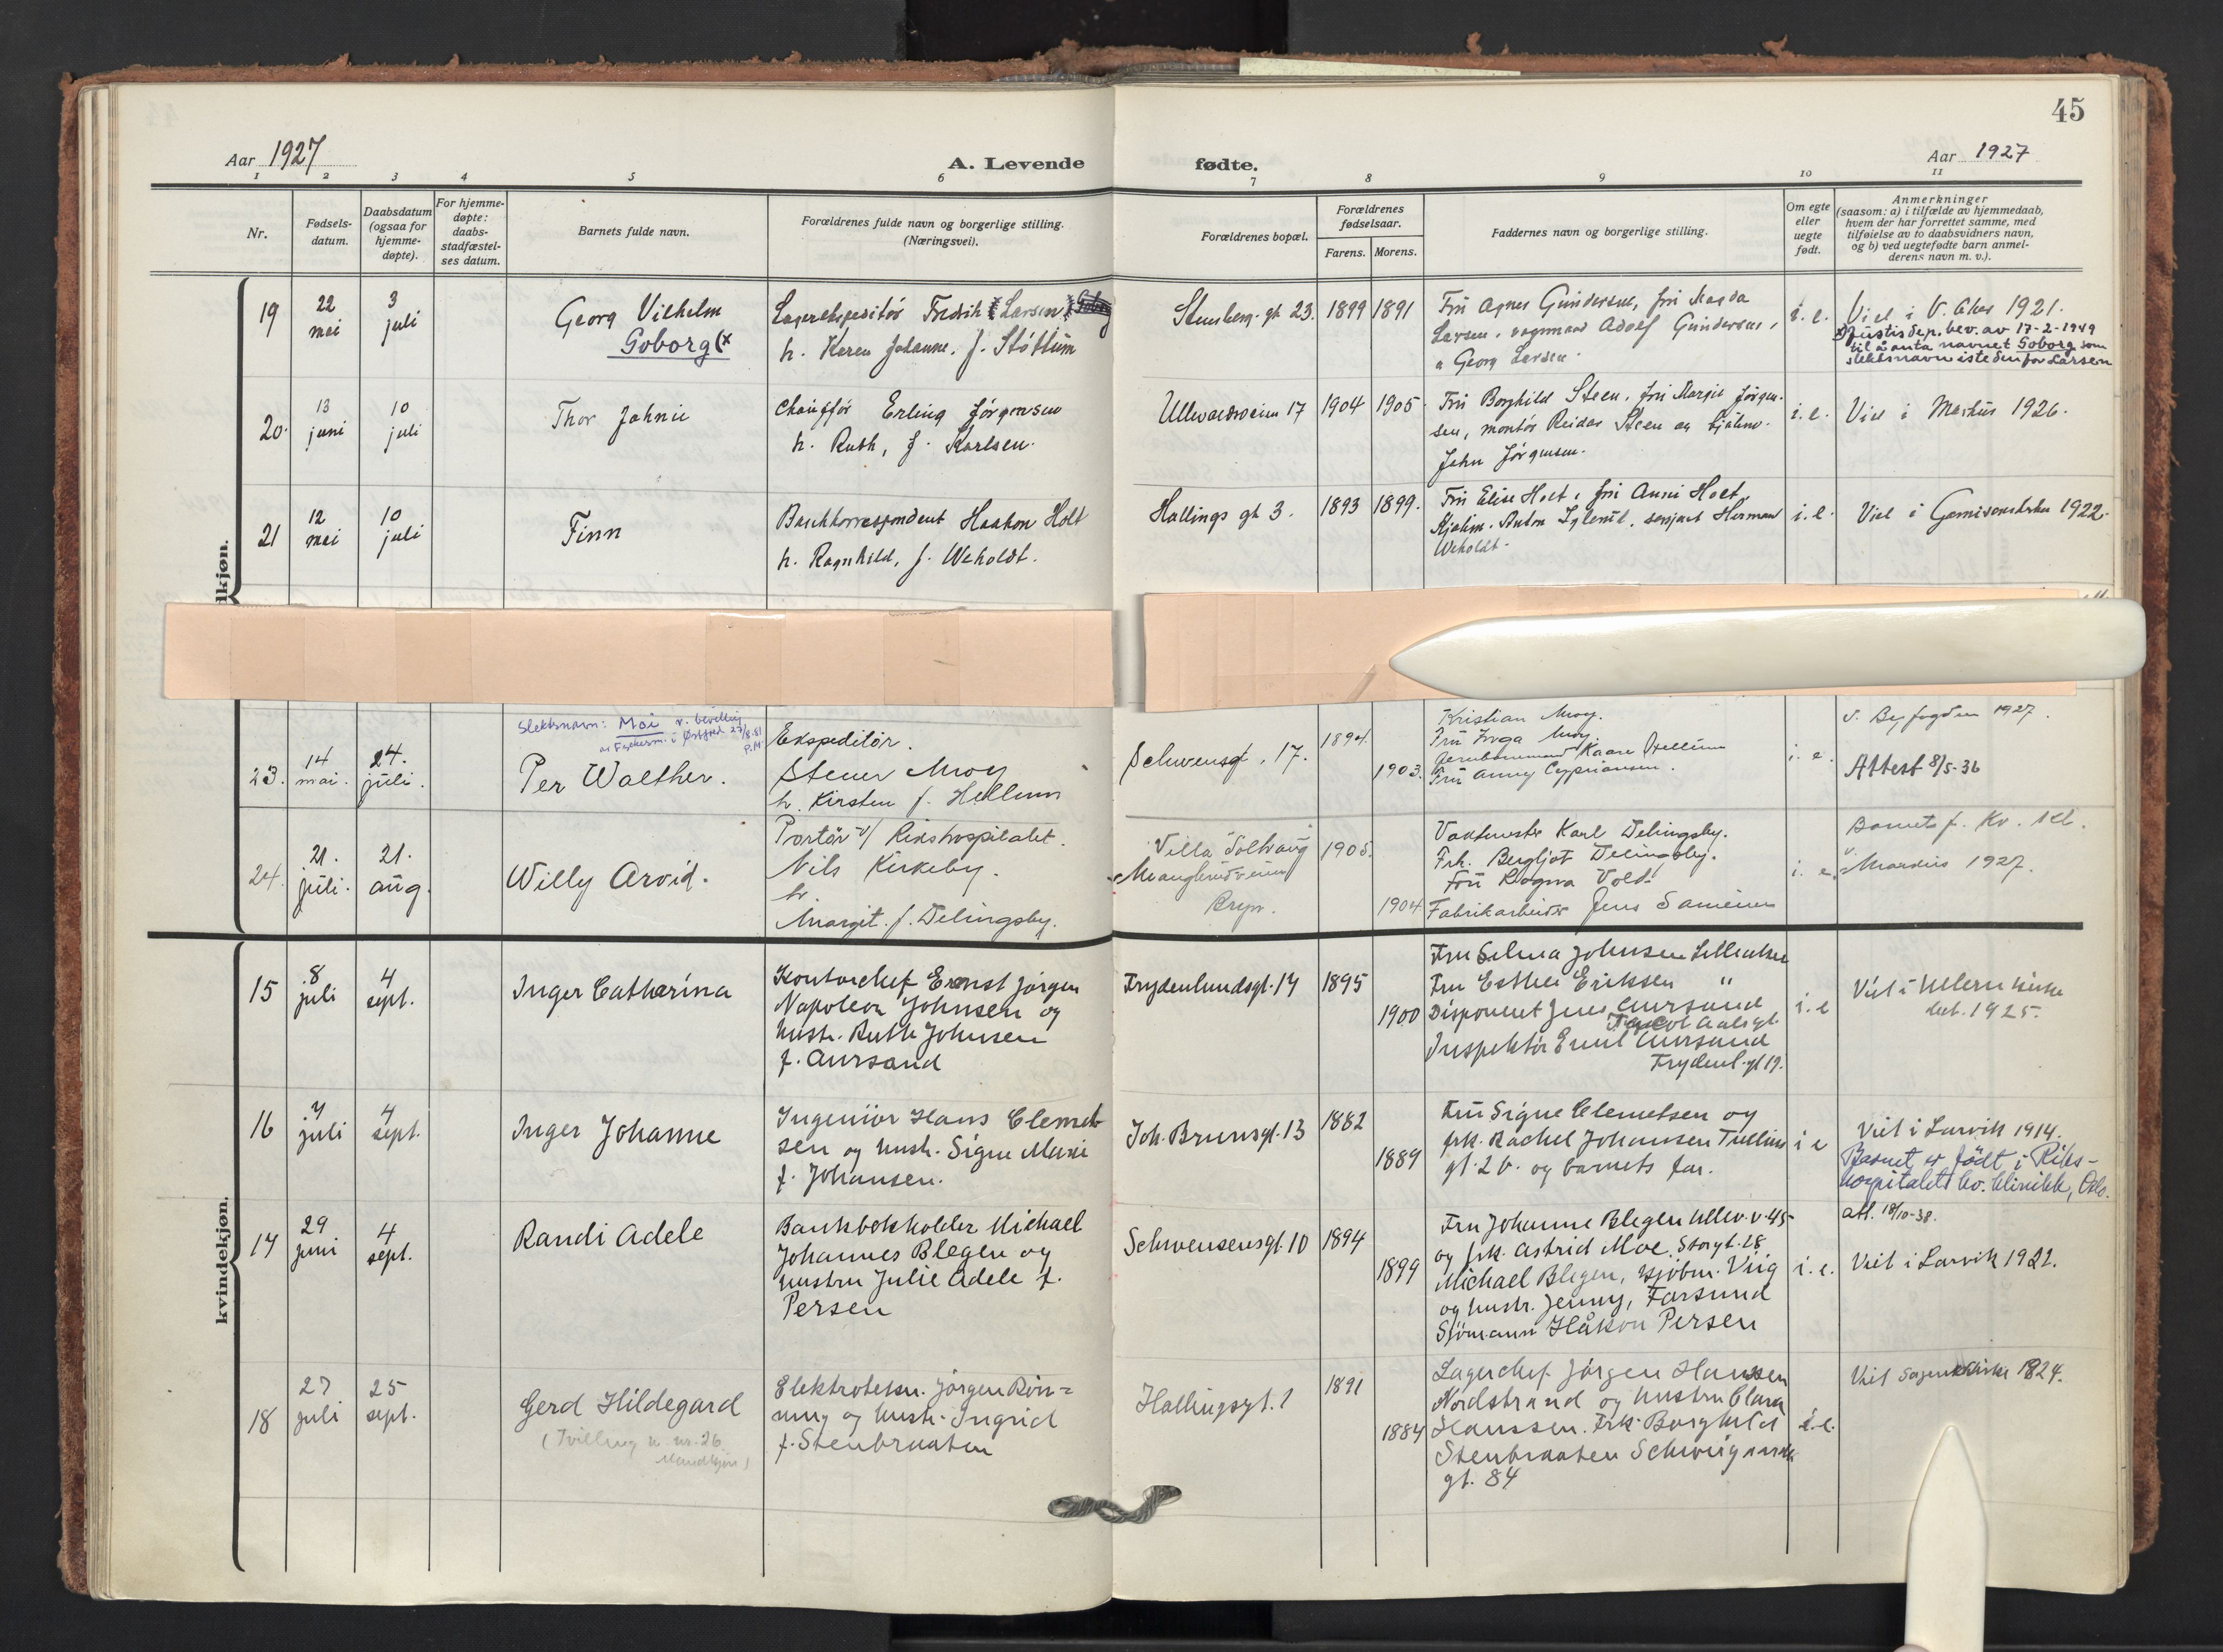 45
Aar 1927
A. Levende
fødte.
Aar 1927
1 2 3 4 5 6 7 8 9 10 11
Nr.
Fødsels-
datum.
Daabsdatum
(ogsaa for
hjemme-
døpte).
For hjemme-
døpte:
daabs-
stadfæstel-
ses datum.
Barnets fulde navn.
Forældrenes fulde navn og borgerlige stilling.
(Næringsvei).
Forældrenes bopæl.
Forældrenes
fødselsaar.
Farens. Morens.
Faddernes navn og borgerlige stilling.
Om egte
eller
uegte
født.
Anmerkninger
(saasom: a) i tilfælde av hjemmedaab,
hvem der har forrettet samme, med
tilføielse av to daabsvidners navn,
og b) ved uegtefødte barn anmel-
derens navn m. v.).
19
22
mai
3
juli
Georg Vilhelm
Goborg (x
Lagerekspeditør Fredrik Larsen
h. Karen Johanne, f. Støttum
Stensberg. gt 23.
1899 1891
Fru Agnes Gundersen, fru Magda
Larsen, vognmand Adolf Gundersen,
Georg Larsen.
i. e.
Viel i V. Aker 1921.
x) Justisdep. bev. av 17-2-1949
til å anta navnet Goborg som
slektsnavn istedenfor Larsen
20.
13
juni
10
juli
Thor Johnie
Chauffør Erling Jørgensen
h. Ruth, f. Karlsen.
Ullevaalsveien 17
1904 1905.
Fru Borghild Steen, fru Margit Jørgen-
sen, montør Reidar Steen og
John Jørgensen.
i. e.
Viel i Markus 1926.
21
12
mai
10
juli
Finn
Bankkorrespondent Haakon Holt
h. Ragnhild, f. Weholdt.
Hallings gt 3.
1893 1899.
Fru Elise Holt, fru Anni Holt,
Kjøbm. Anton, sersjant Herman
Weholdt.
i. e.
Viel i Garnisonskirken 1922.
Slektsnavn: Moi v. bevilling
23.
14
mai.
24.
juli.
Per Walther.
Ekspeditør.
Stener Moy
h. Kirsten f. Hellum
Schwensgt. 17.
1894.
1903.
Kristian Moy.
Fru Inga Moy.
Kaare Hellum
Fru Anny Cypriansen.
i. e.
v. Byfogden 1927.
Attest 8/5-36
24.
21.
juli.
21.
aug.
Willy Arvid.
Portør v/ Rikshospitalet.
Nils Kirkeby.
h.
Margit. f. Delingsby.
Villa Solhaug
Manglerudveien
Bryn.
1905.
1904
Vaktmester Karl Delingsby.
Frk. Bergljot Delingsby.
Fru Ragna Vold.
Fabrikarbeider Jens
i. e.
Barnet f. Kv. kl.
v. Mardius 1927.
15
8
juli
4
sept.
Inger Catharina
Kontorchef Ernst Jørgen
Napoleon Johnsen og
hustr. Ruth Johnsen
f. Aursand
Frydenlundsgt. 14
1895
1900
Fru Selma Johnsen Lilleaker
Fru Esther Eriksen "
Disponent Jens Aursand
Jacob Aalsgt.
Inspektør Emil Aursand
Frydenl. gt 19.
i. e
Viet i Ullern kirke
1925.
16
7
juli
4
sept.
Inger Johanne
Ingeniør Hans Clemet-
sen og hustr. Signe Marie
f. Johansen.
Joh. Brunsgt. 13
1882
1889
Fru Signe Clemetsen og
frk. Rachel Johansen Tullins
gt. 2 b. og barnets far.
i e
Viet i Larvik 1914.
Barnet er født i Riks-
hospitalets kv. klinikk, Oslo.
att. 18/10-38.
17
29
juni
4
sept.
Randi Adele
Bankbokholder Michael
Johannes Blegen og
hustru Julie Adele f.
Persen
Schwensensgt. 10
1894
1899
Fru Johanne Blegen Ullev. v. 45
og frk. Astrid Moe, Storgt. 28
Michael Blegen, kjøbm. Viig
og hustr. Jenny, Farsund
Sjømann Håkon Persen
i. e.
Viet i Larvik 1921.
18
27
juli
25
sept.
Gerd Hildegard
(Tvilling m. nr. 26
Mandkjøn)
Elektrotekn. Jørgen Røn-
ning og hustr. Ingrid
f. Stenbraaten
Hallingsgt. 1
1891
1884
Lagerchef Jørgen Hanssen
Nordstrand og hustru Clara
Hanssen. Frk. Borghild
Stenbraaten Schweigaards
gt. 84
i. e.
Viet Sagenekirke 1824.
kvindekjøn.